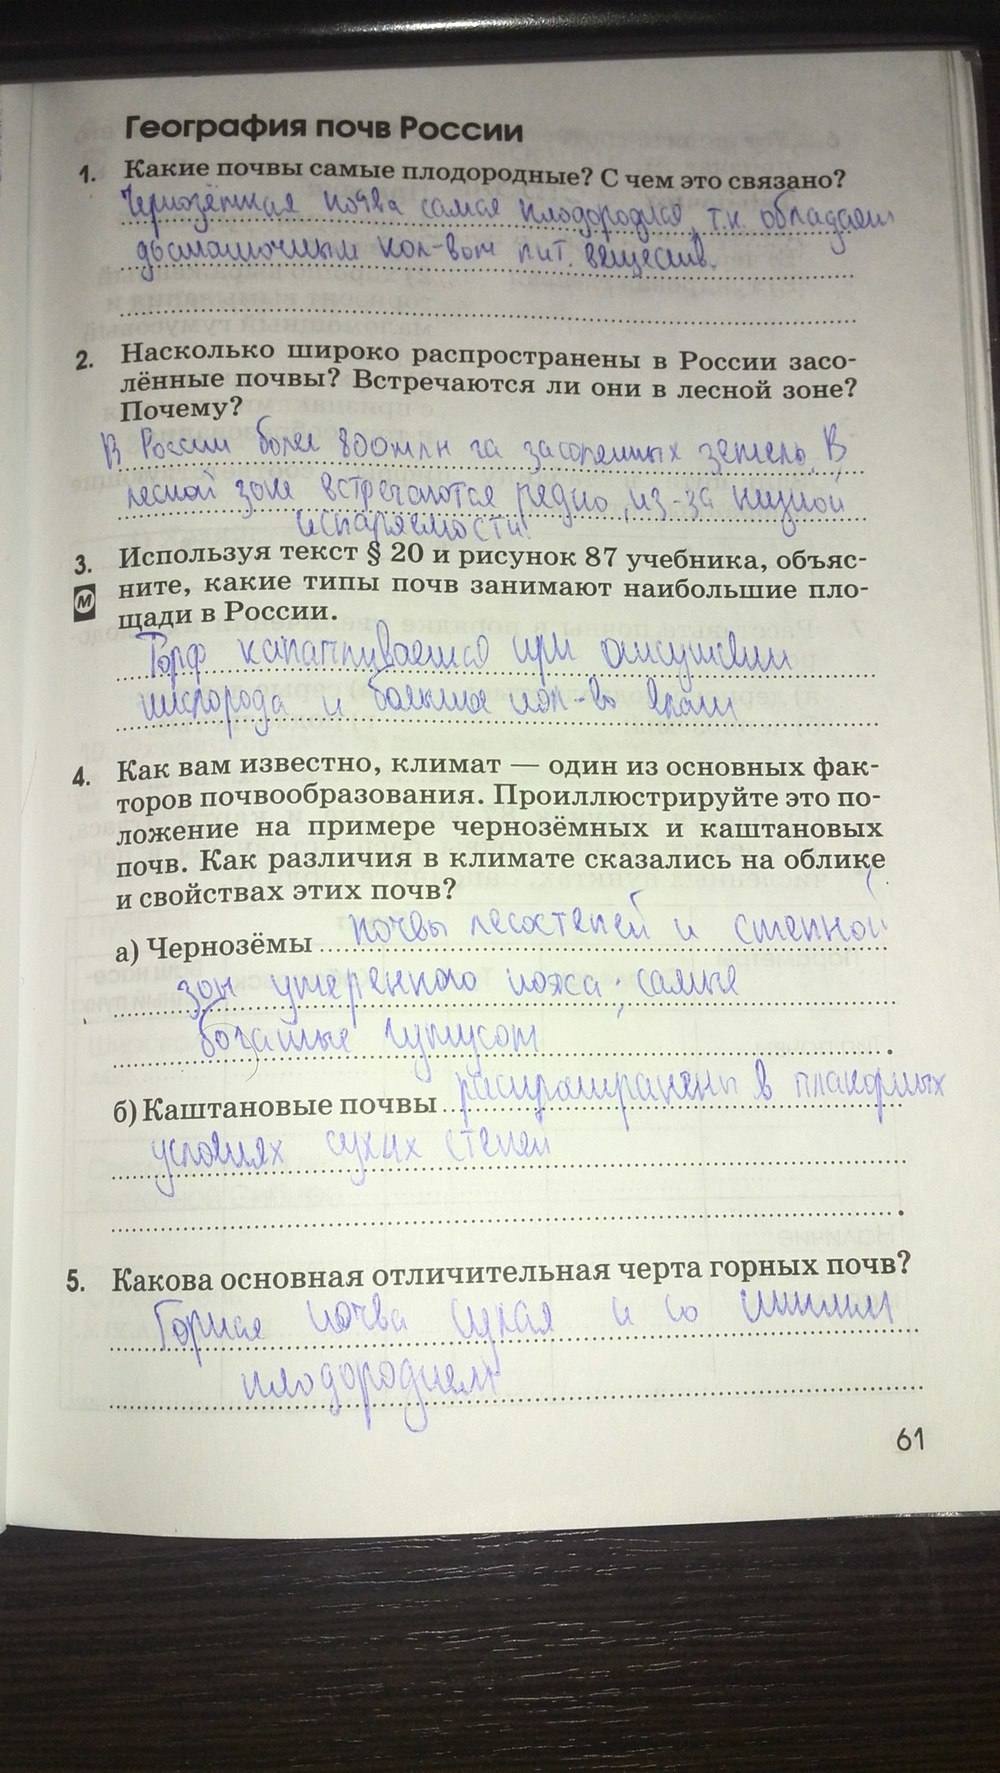 География почв России
1. Какие почвы самые плодородные? С чем это связано?
Чернозёмная почва самая плодородная, т.к. обладает
достаточным кол-вом пит. веществ.
2. Насколько широко распространены в России засо-
лённые почвы? Встречаются ли они в лесной зоне?
Почему?
В России более 800млн га засоленных земель. В
лесной зоне встречаются редко, из-за низкой
испаряемости.
3. Используя текст § 20 и рисунок 87 учебника, объяс-
М ните, какие типы почв занимают наибольшие пло-
щади в России.
Торф накапливается при отсутствии
кислорода и большое кол-во влаги
4. Как вам известно, климат — один из основных фак-
торов почвообразования. Проиллюстрируйте это по-
ложение на примере чернозёмных и каштановых
почв. Как различия в климате сказались на облике
и свойствах этих почв?
а) Чернозёмы почвы лесостепей и степной
зон умеренного пояса; самые
богатые гумусом.
б) Каштановые почвы распространены в плакорных
условиях сухих степей
5. Какова основная отличительная черта горных почв?
Горная почва сухая и со
плодородием
61